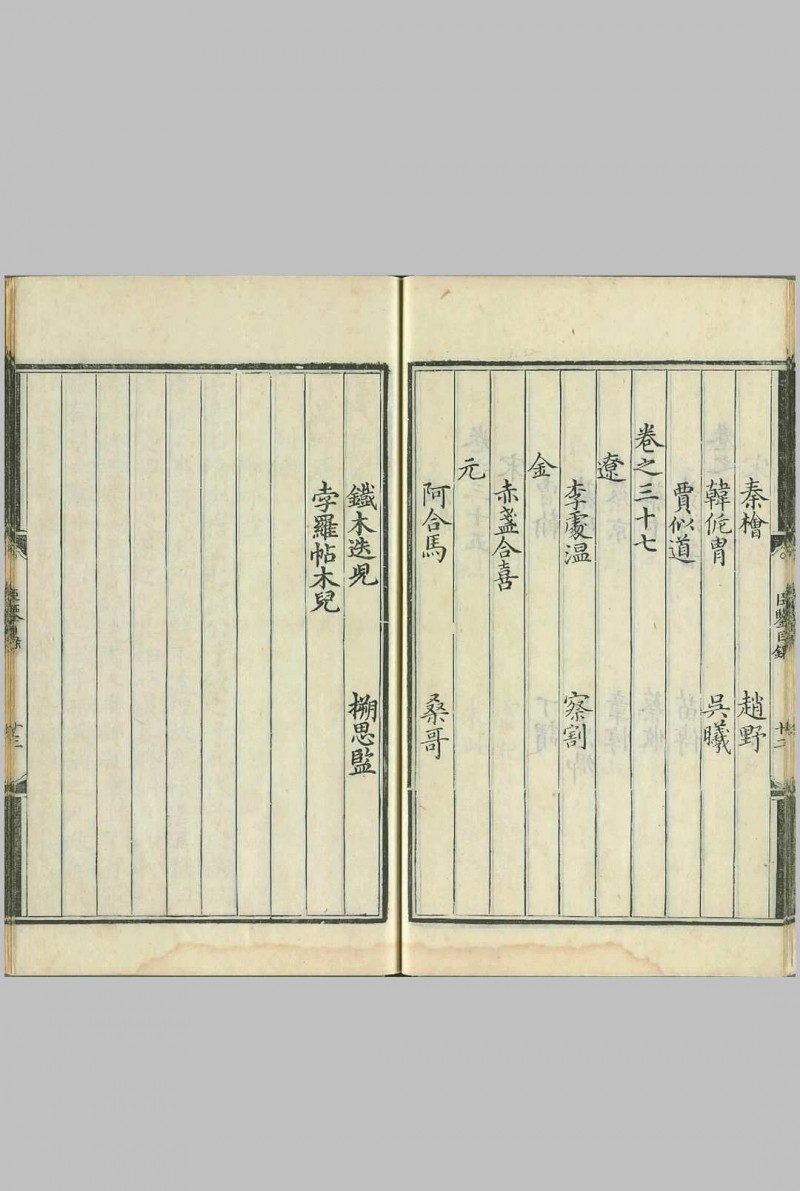 秦檜 趙野
韓侂胄 吳曦
賈似道
卷之三十七
遼
李處温 察割
金
赤盞合喜
元
阿合馬 桑哥
鐵木迭兒 搠思監
孛羅帖木兒
臣鑒目錄
廿三